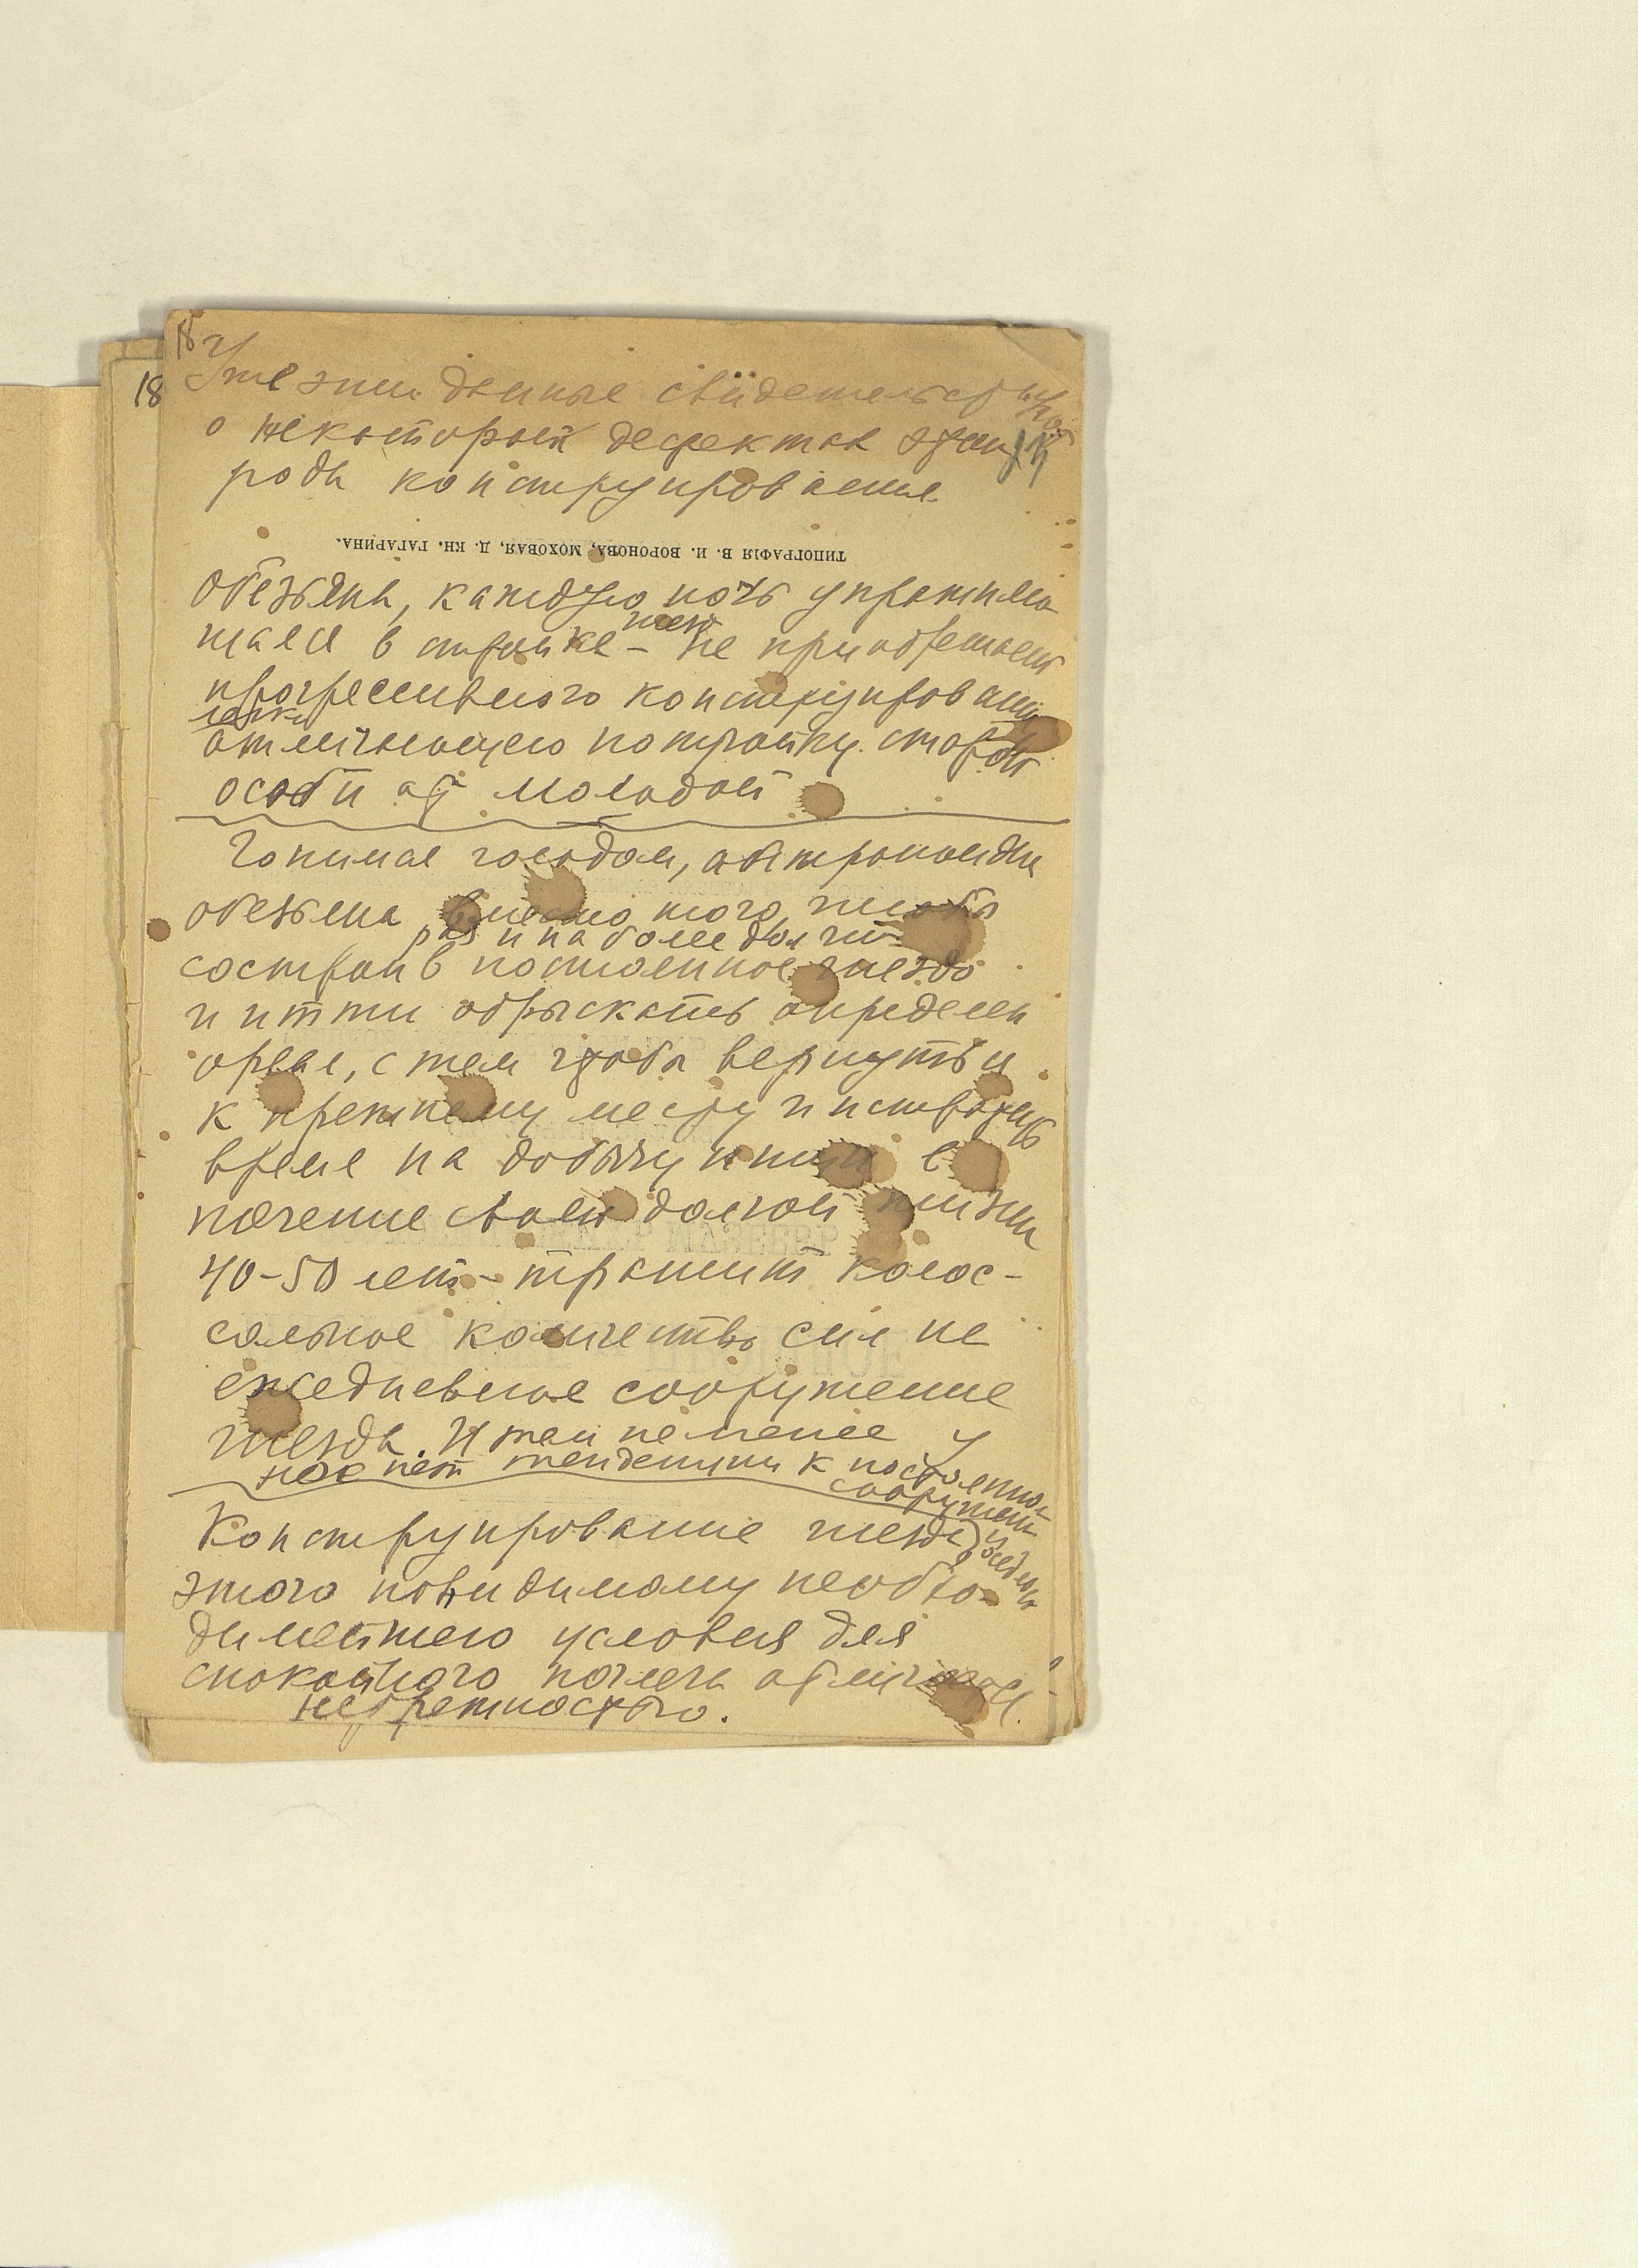 18
18
Уже эти данные свидетельствуют
о некоторых дефектах этого
рода конструирования
ТИПОГРАФІЯ В. И. ВОРОНОВА, МОХОВАЯ, Д. КН. ГАГАРИНА.
Обезьяна, каждую ночь упражняю
щаяся в стройке – не приобретает
прогрессивного конструирования
отличающего постройку старой
особи от молодой
Гонимая голодом, антропоидн
обезьяна вместо того, чтобы
раз и на более долгий
состроив постоянное гнездо
и итти обрыскать определен
ореал, с тем чтобы вернуться
к прежнему месту и
время на добычу пищи в
течение своей долгой жизни
40-50 лет – тратит колос-
сальное количество сил на
ежедневное сооружение
гнезда. И тем не менее у
нее нет тенденции к постоянном
сооружен
Конструирование гнезд
этого повидимому необхо-
димейшего условия для
спокойного ночлега отличается
небрежностью.